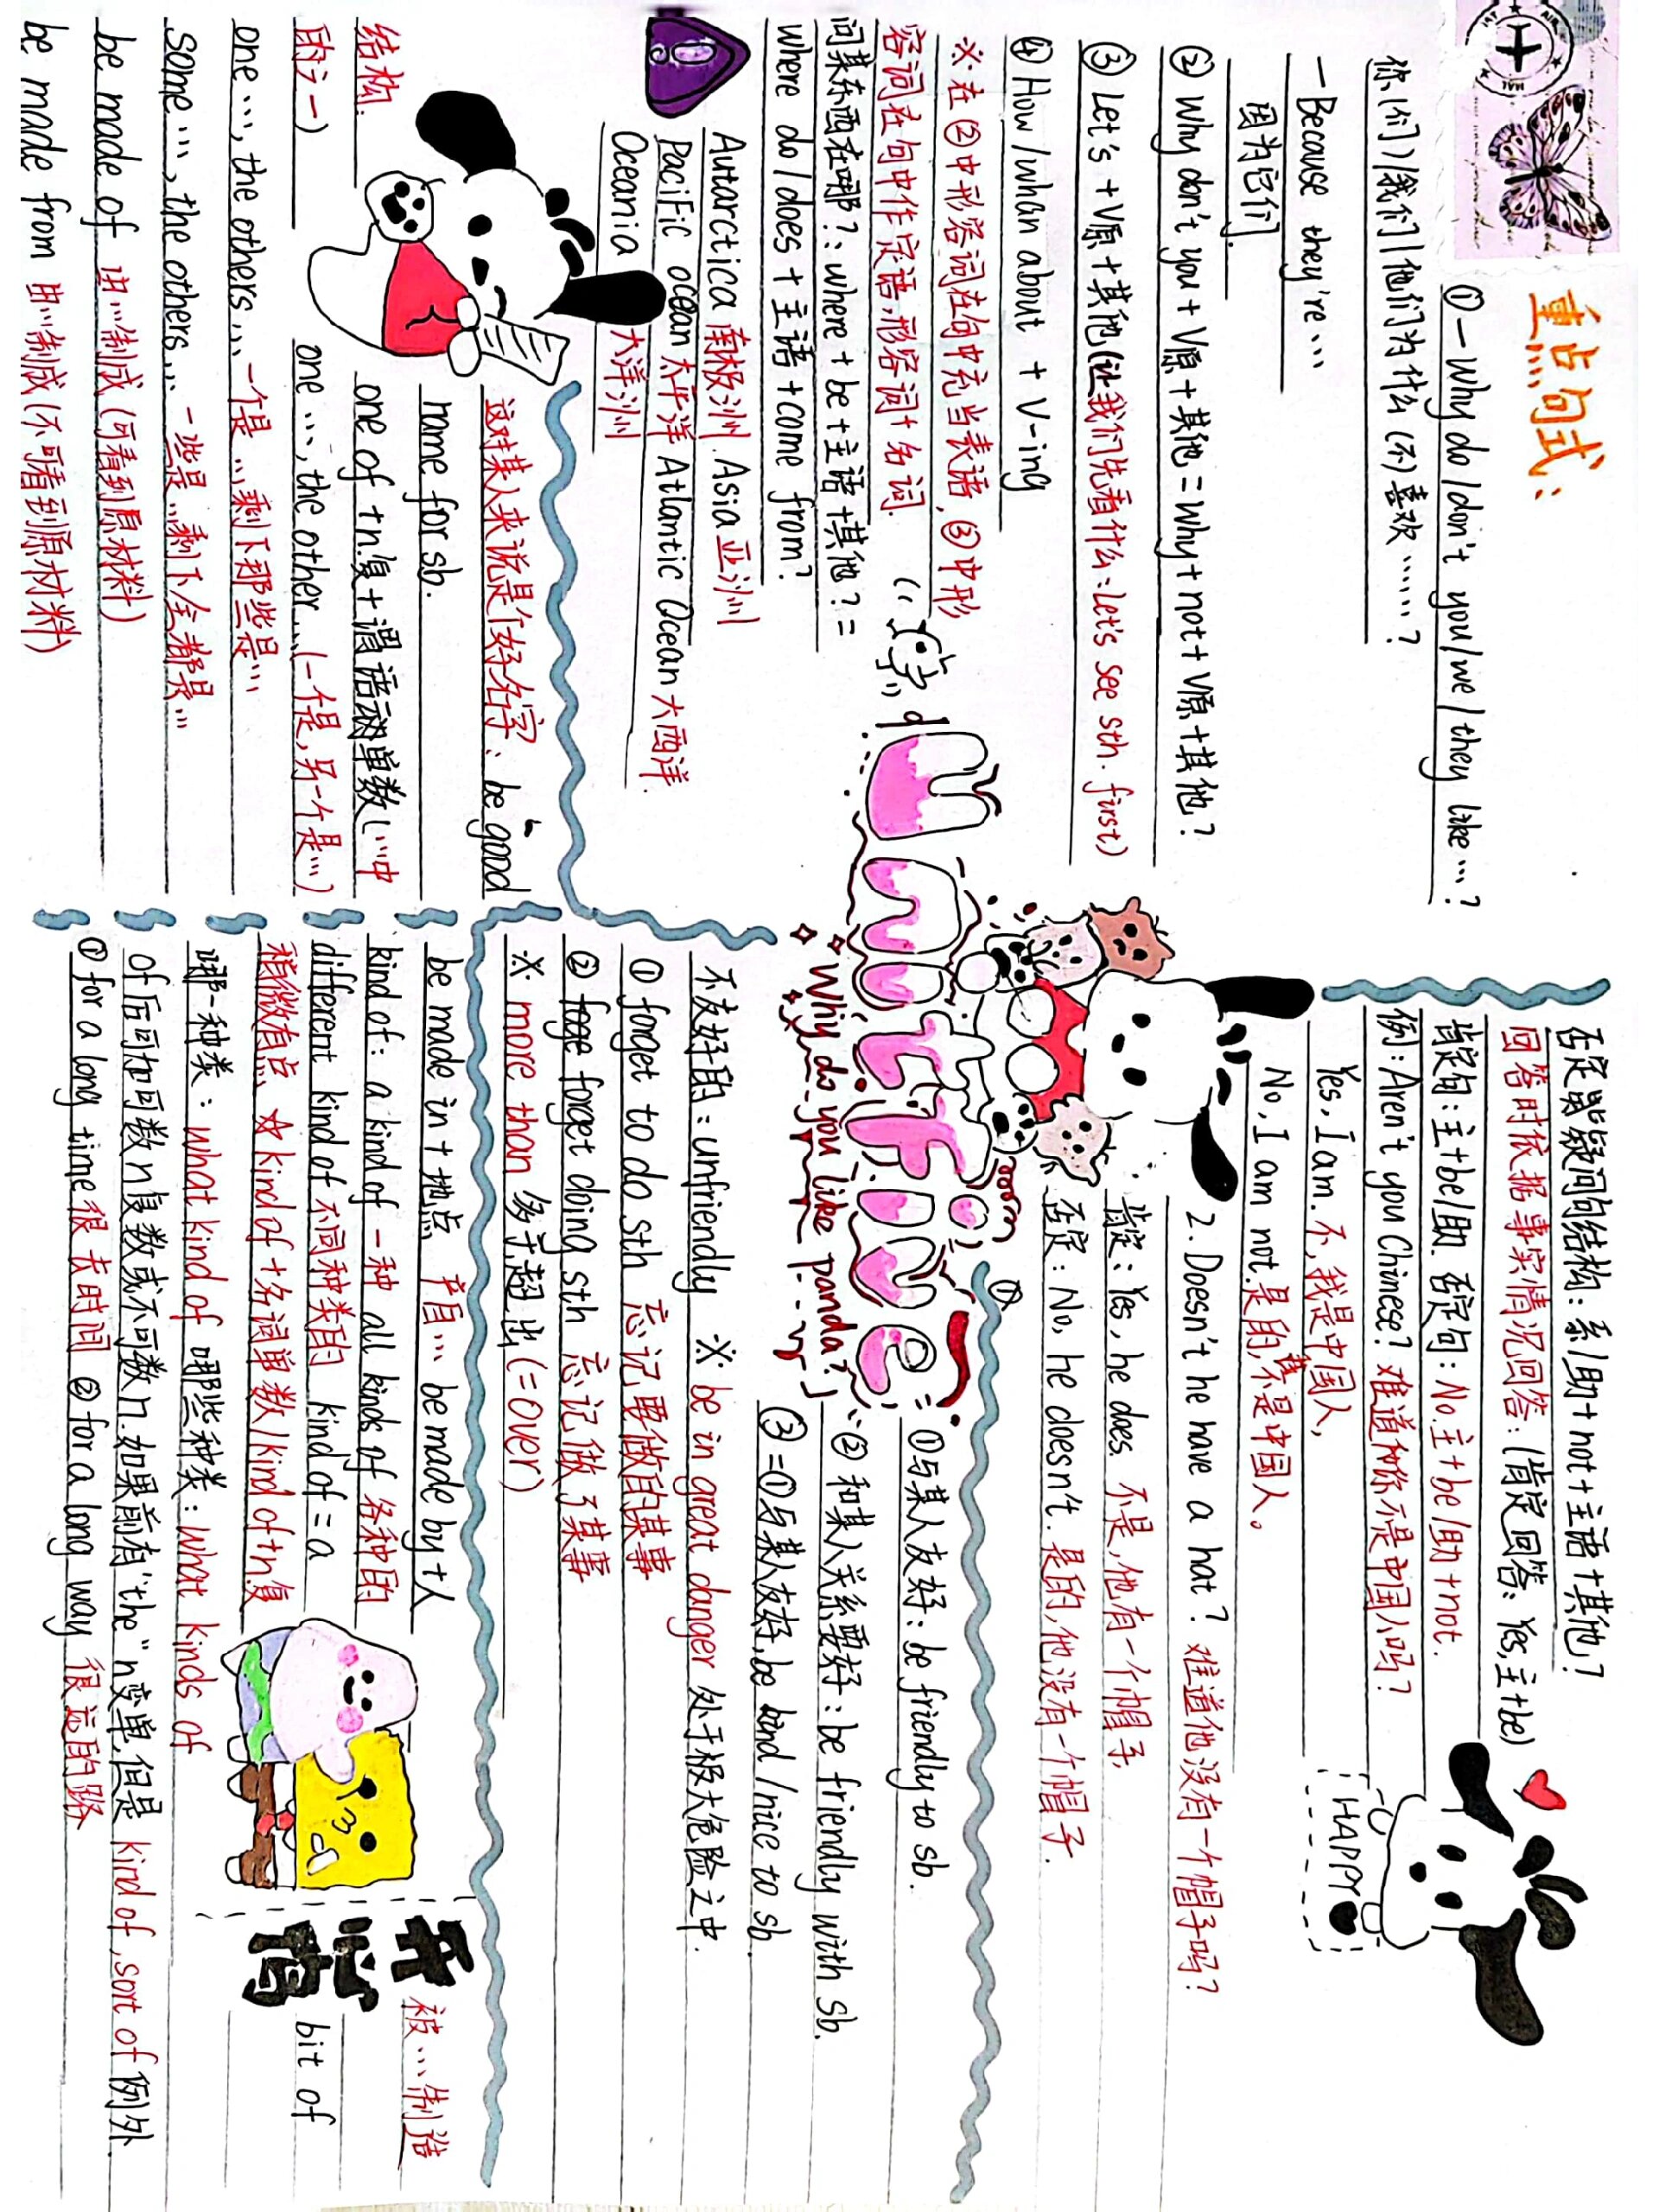 重点句式：
①－Why do/don't you/we/they like…?
你(们)/我们/他们为什么(不)喜欢……?
－Because they're…
因为它们
② Why don't you + V原 + 其他 = Why + not + V原 + 其他?
③ Let's + V原 + 其他(让我们先看什么:Let's see sth. first)
④ How/whan about + V-ing
※在②中形容词在句中充当表语,③中形
容词在句中作定语,形容词+名词.
问某东西在哪?:where + be + 主语 + 其他? =
where do/does + 主语 + come from?
Autarctica 南极洲. Asia 亚洲
PaciFic ocean 太平洋 Atlantic Ocean 大西洋.
Oceania 大洋洲
这对某人来说是个好名字: be good
name for sb.
结构: one of + n.复 + 谓语动单数(…中
的之一) one …, the other …(一个是,另一个是…)
one …, the others … 一个是…,剩下那些是…
some …, the others … 一些是…剩下全都是…
be made of 由…制成 (可看到原材料)
be made from 由…制成(不可看到原材料)
Unit Five
Why do you like panda?
否定疑问句结构:系/助+not+主语+其他?
回答时依据事实情况回答:(肯定回答:Yes,主+be)
肯定句:主+be/助. 否定句:No.主+be/助+not.
例:Aren't you Chinese? 难道你不是中国人吗?
Yes, I am. 不,我是中国人,
No, I am not. 是的,我不是中国人。
2. Doesn't he have a hat? 难道他没有一个帽子吗?
肯定:Yes, he does. 不是,他有一个帽子,
否定:No, he doesn't. 是的,他没有一个帽子.
HAPPY
①与某人友好:be friendly to sb.
②和某人关系要好:be friendly with sb.
③=①与某人友好,be kind/nice to sb
不友好的:unfriendly ※ be in great danger 处于极大危险之中.
① forget to do sth 忘记要做的某事
② forget doing sth 忘记做了某事
※ more than 多于,超出(=over)
be made in + 地点 产自… be made by + 人 被…制造
kind of: a kind of 一种 all kinds of 各种的
different kind of 不同种类的 kind of = a bit of
稍微有点 ☆ kind of + 名词单数/kind of + n复
哪一种类:what kind of 哪些种类:what kinds of
of后可加可数n复数或不可数n.如果前有"the"n变单,但是 kind of, sort of 例外
① for a long time 很长时间 ② for a long way 很远的路